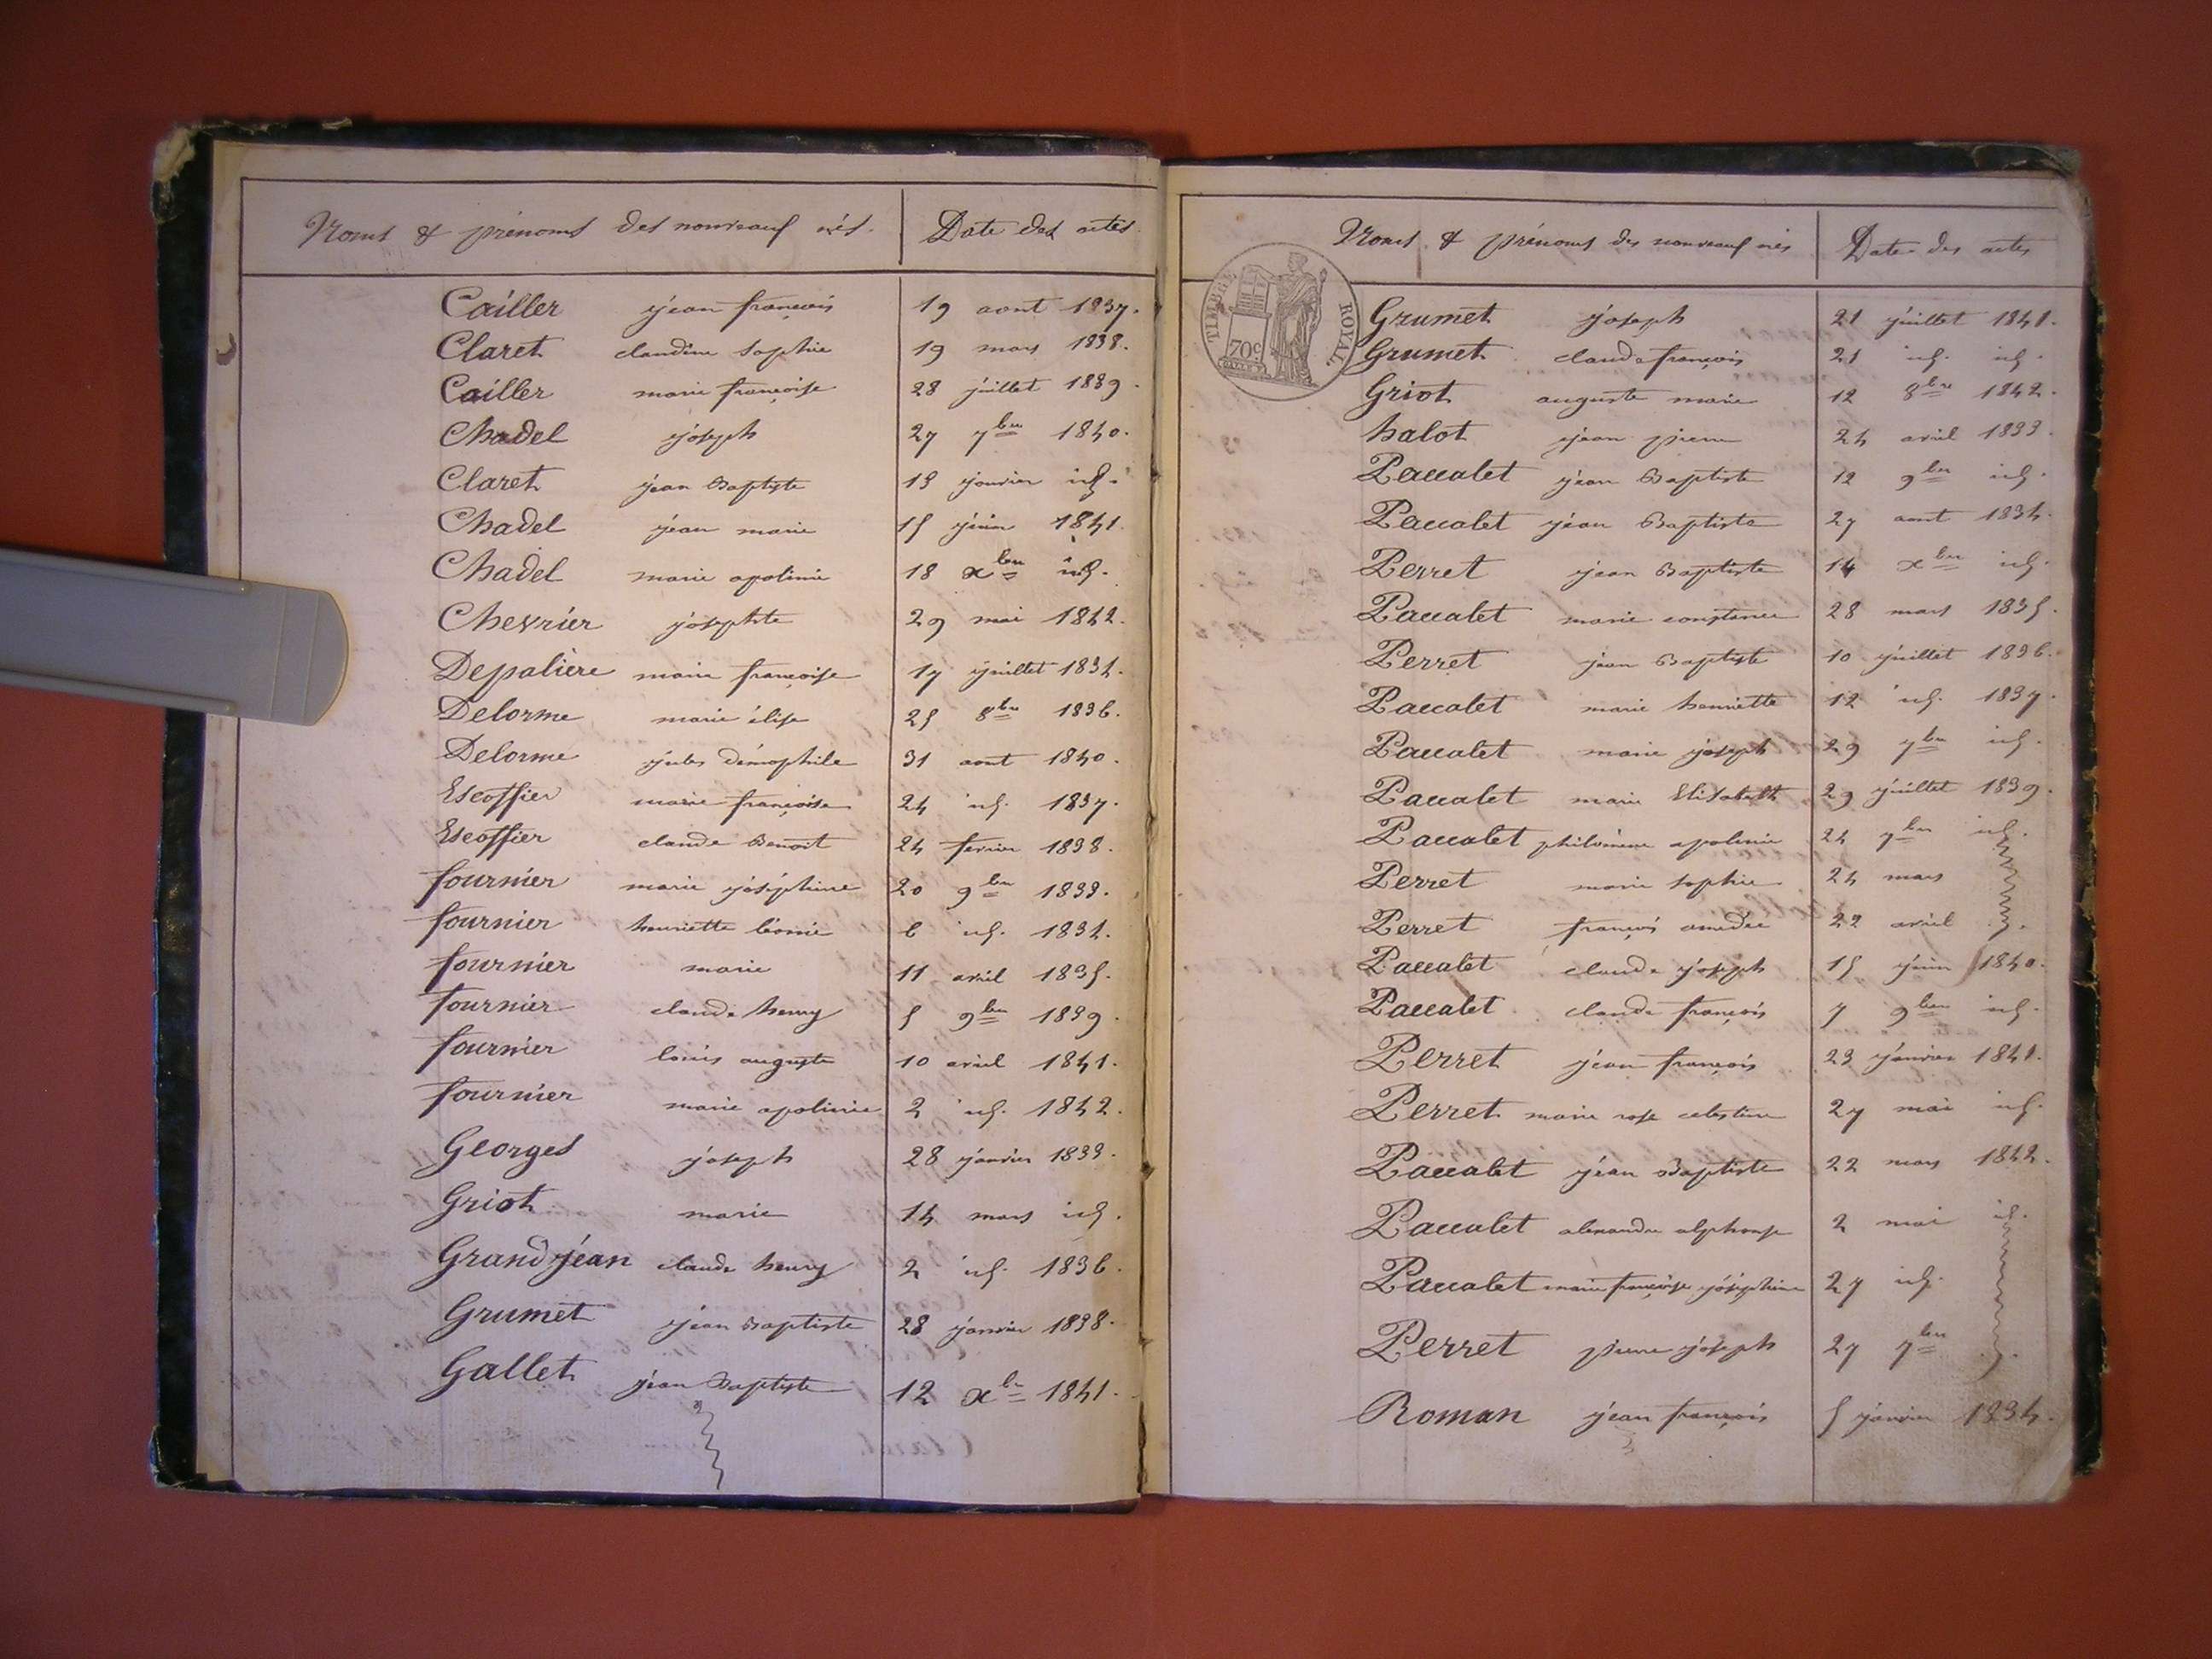 Noms & prénoms des nouveaux nés. Date des actes.
Cailler jean françois 19 aout 1837.
Claret claudine Sophie 19 mars 1838.
Cailler marie françoise 28 juillet 1839.
Chadel joseph 27 7bre 1840.
Claret jean Baptiste 13 janvier id.
Chadel jean marie 15 juin 1841.
Chadel marie apolinie 18 xbre id.
Chevrier josephte 29 mai 1842.
Depalière marie françoise 17 juillet 1834.
Delorme marie élise 25 8bre 1836.
Delorme jules démophile 31 aout 1840.
Escoffier marie françoise 24 id. 1837.
Escoffier claude Benoit 24 fevrier 1838.
fournier marie joséphine 20 9bre 1833.
fournier henriette léonie 6 id. 1834.
fournier marie 11 avril 1835.
fournier claude henry 5 9bre 1839.
fournier louis auguste 10 avril 1841.
fournier marie apolinie 2 id. 1842.
Georges joseph 28 janvier 1833.
Griot marie 14 mars id.
Grandjean claude henry 2 id. 1836.
Grumet jean Baptiste 28 janvier 1838.
Gallet jean Baptiste 12 xbre 1841.
Noms & prénoms des nouveaux nés Date des actes
TIMBRE ROYAL
70c
Grumet joseph 21 juillet 1841.
Grumet claude françois 21 id. id.
Griot auguste marie 12 8bre 1842.
halot jean pierre 24 avril 1833.
Paccalet jean Baptiste 12 9bre id.
Paccalet jean Baptiste 27 aout 1834.
Perret jean Baptiste 14 xbre id.
Paccalet marie constance 28 mars 1835.
Perret jean Baptiste 10 juillet 1836.
Paccalet marie henriette 12 id. 1837.
Paccalet marie joseph 29 7bre id.
Paccalet marie Elisabeth 29 juillet 1839.
Paccalet philomène apolinie 24 7bre id.
Perret marie sophie 24 mars
Perret françois amédée 22 avril
Paccalet claude joseph 15 juin 1840.
Paccalet claude françois 7 9bre id.
Perret jean françois 23 janvier 1841.
Perret marie rose celestine 27 mai id.
Paccalet jean Baptiste 22 mars 1842.
Paccalet alexandre alphonse 2 mai id.
Paccalet marie françoise joséphine 27 id.
Perret pierre joseph 27 7bre
Roman jean françois 5 janvier 1834.